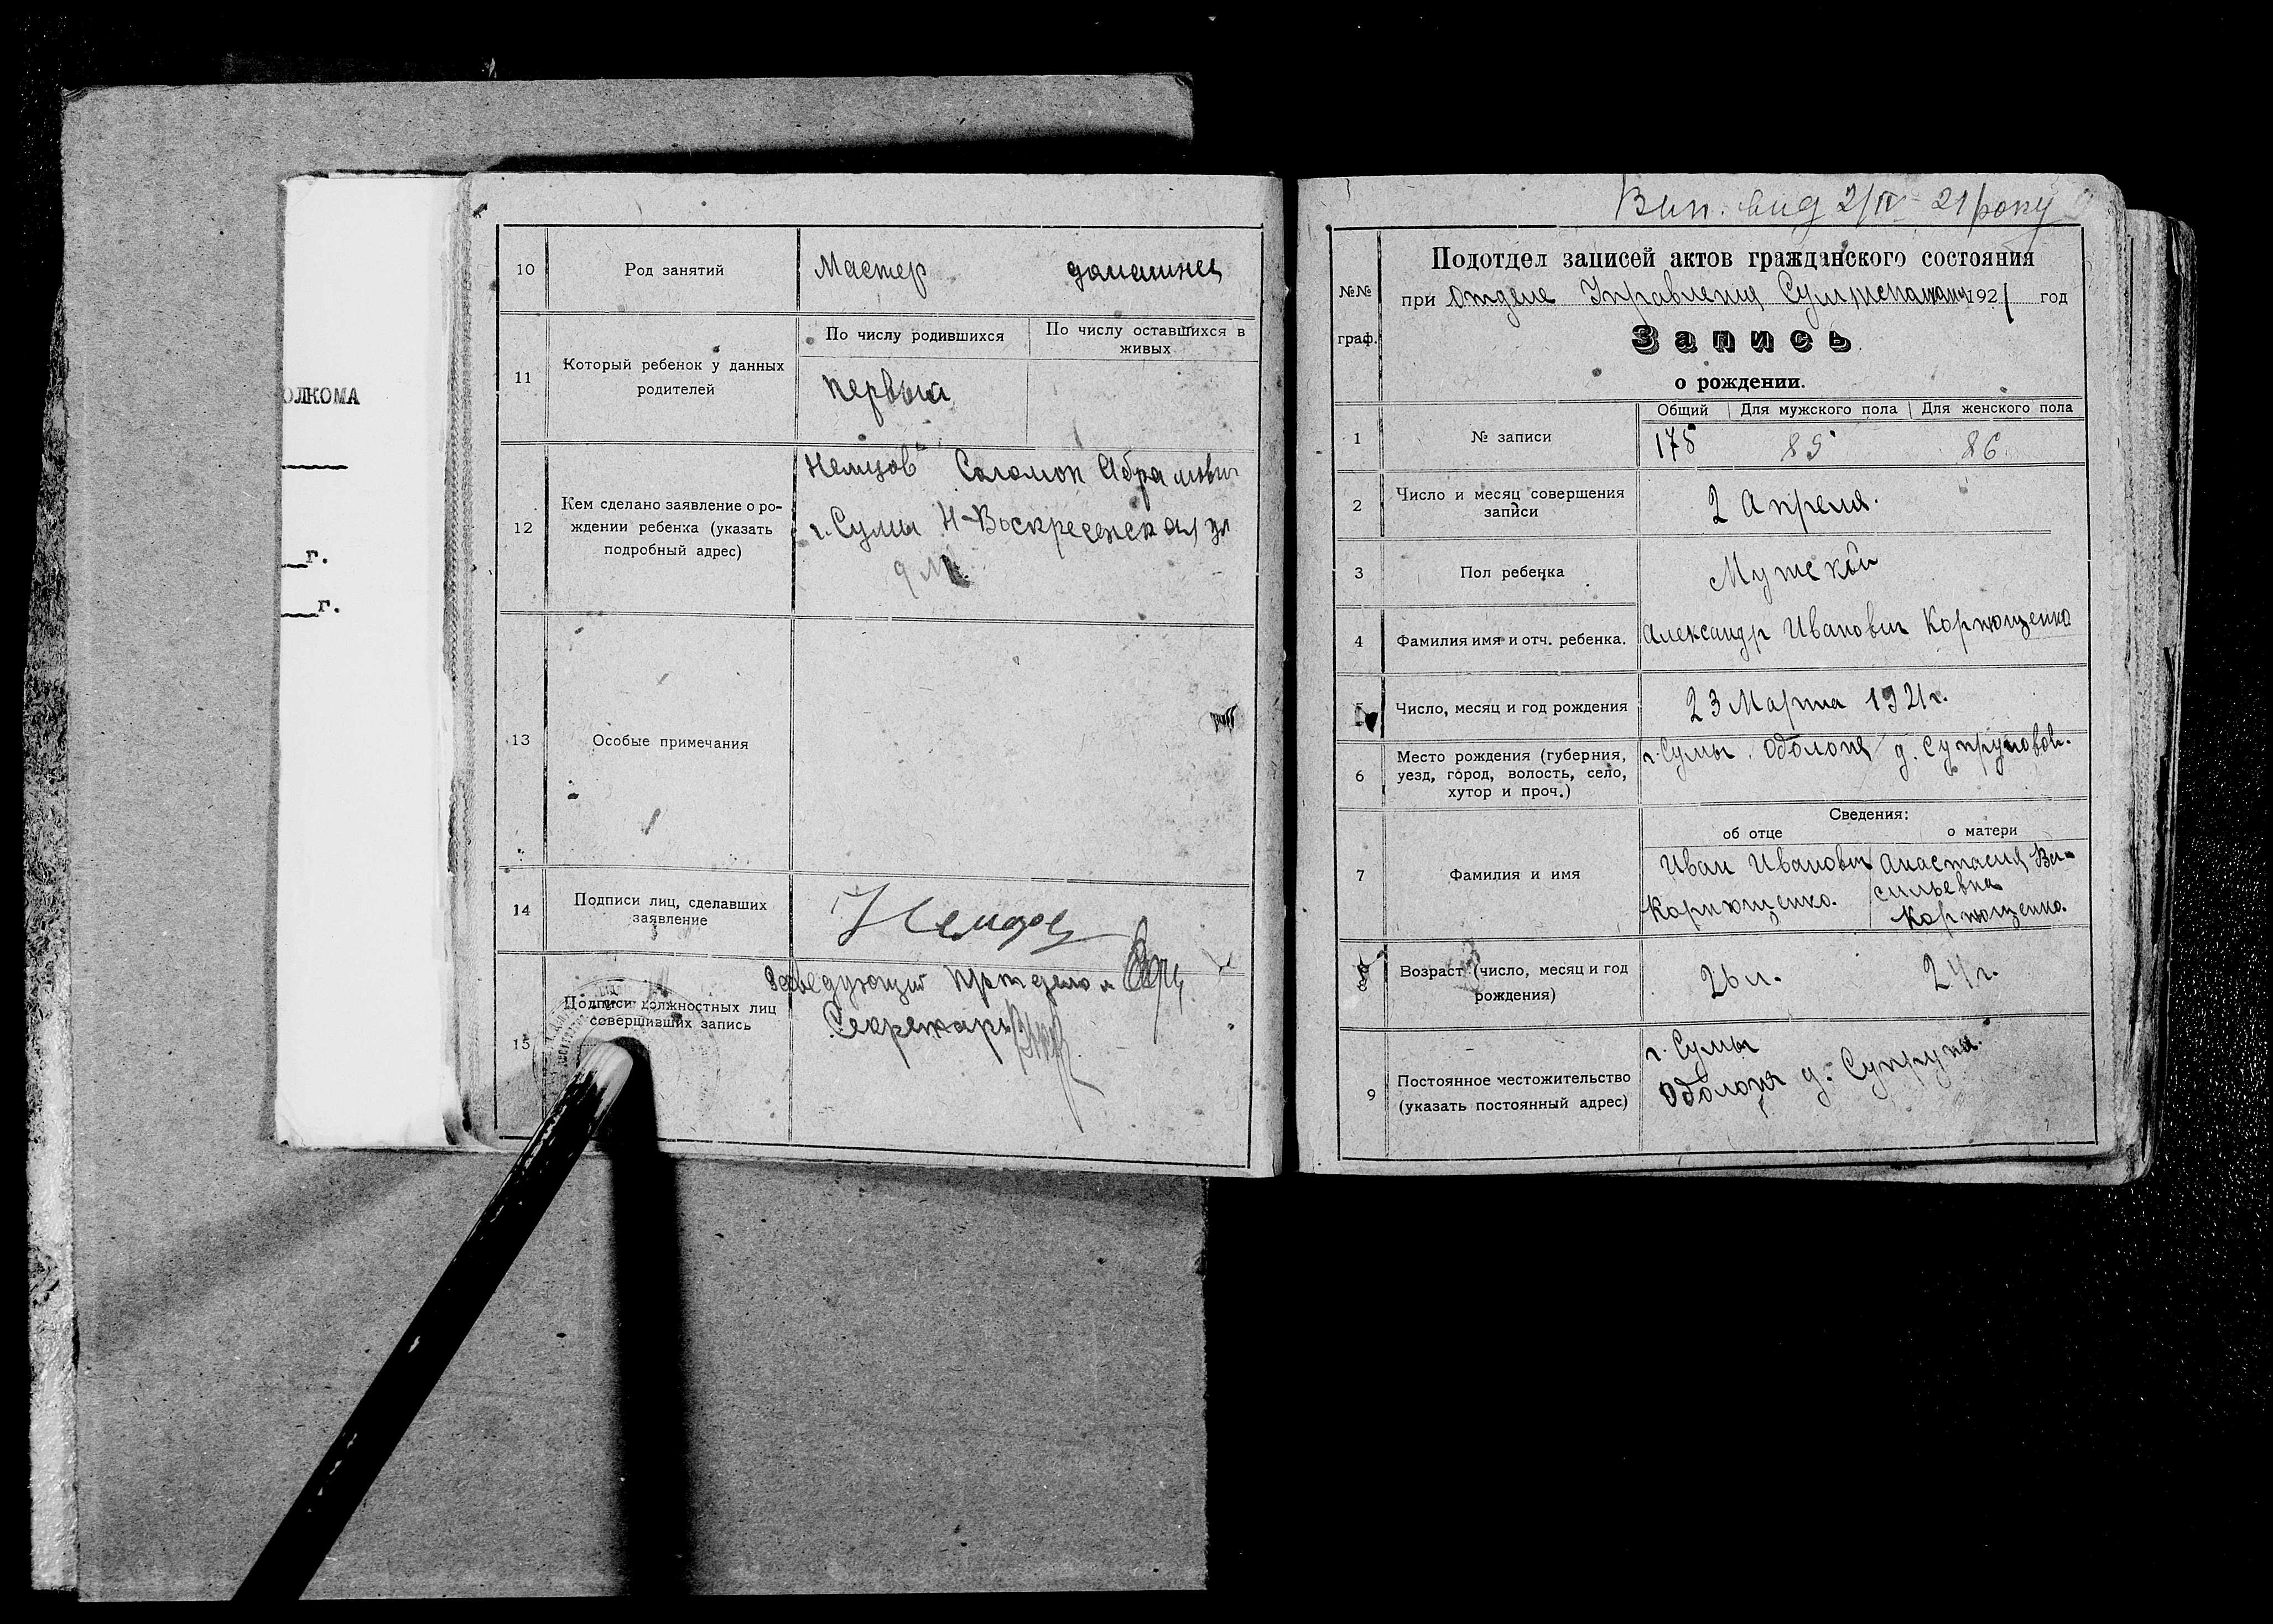 ОЛКОМА
г.
г.
10 Род занятий Мастер
11 Который ребенок у данных родителей
По числу родившихся По числу оставшихся в живых
первый
12 Кем сделано заявление о ро-
ждении ребенка (указать
подробный адрес)
Немцов Соломон Абрамович
г. Сумы Н-Воскресенская ул
13 Особые примечания
14 Подписи лиц, сделавших
заявление
Немцов
15 Подписи должностных лиц
совершивших запись
Заведующий
Секретарь
Вип. вид 2/IV 21 року
№№
граф.
Подотдел записей актов гражданского состояния
при Отделе Управления 1921 год
Запись
о рождении.
Общий Для мужского пола Для женского пола
1 № записи 175 89 86
2 Число и месяц совершения
записи
2 Апреля.
3 Пол ребенка Мужской
4 Фамилия имя и отч. ребенка. Александр Иванович Корнющенко
5 Число, месяц и год рождения 23 Марта 1921 г.
6 Место рождения (губерния,
уезд, город, волость, село,
хутор и проч.)
г. Сумы Оболоня д. Супруновой.
Сведения:
об отце о матери
7 Фамилия и имя
Иван Иванович
Корнющенко.
Анастасия Ва-
сильевна
Корнющенко.
8 Возраст (число, месяц и год
рождения)
26 л. 24 г.
9 Постоянное местожительство
(указать постоянный адрес)
г. Сумы
Оболоня д. Супруна.